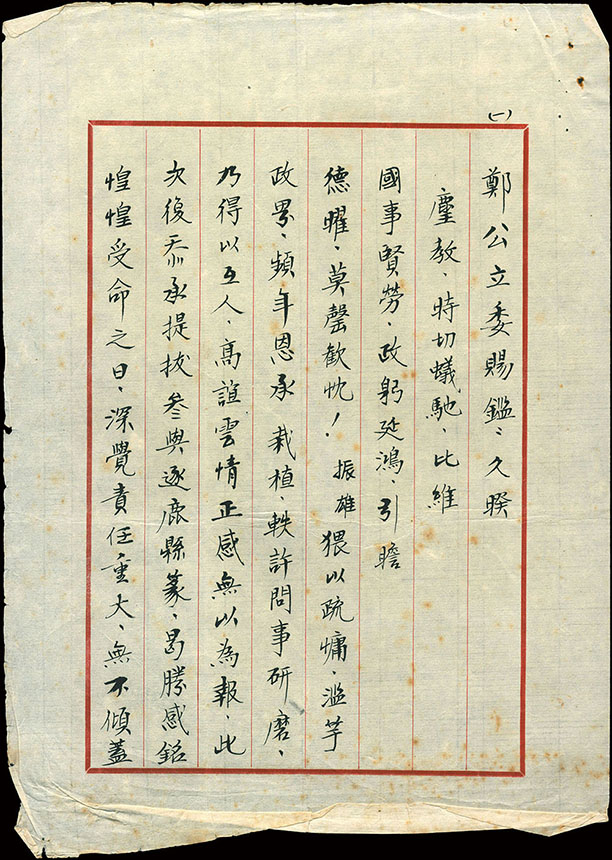 (一)
鄭公立委賜鑑：久暌
麈教、時切蟻馳、比維
國事賢勞、政躬延鴻、引瞻
德曜、莫罄歡忱！振雄猥以疏慵、濫竽
政界、頻年恩承栽植、軼許問事研磨、
乃得以互人、高誼雲情正感無以為報、此
次復忝承提拔參與逐鹿縣篆、曷勝感銘
惶惶受命之日、深覺責任重大、無不傾蓋